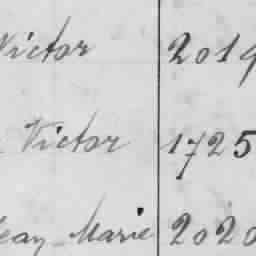 Victor 2019
Victor 1725
Jean Marie 2020